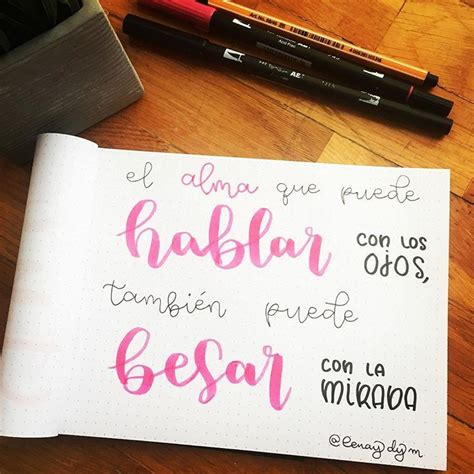 el alma que puede
hablar con los
ojos,
también puede
besar con la
mirada
@lenay_dy_m